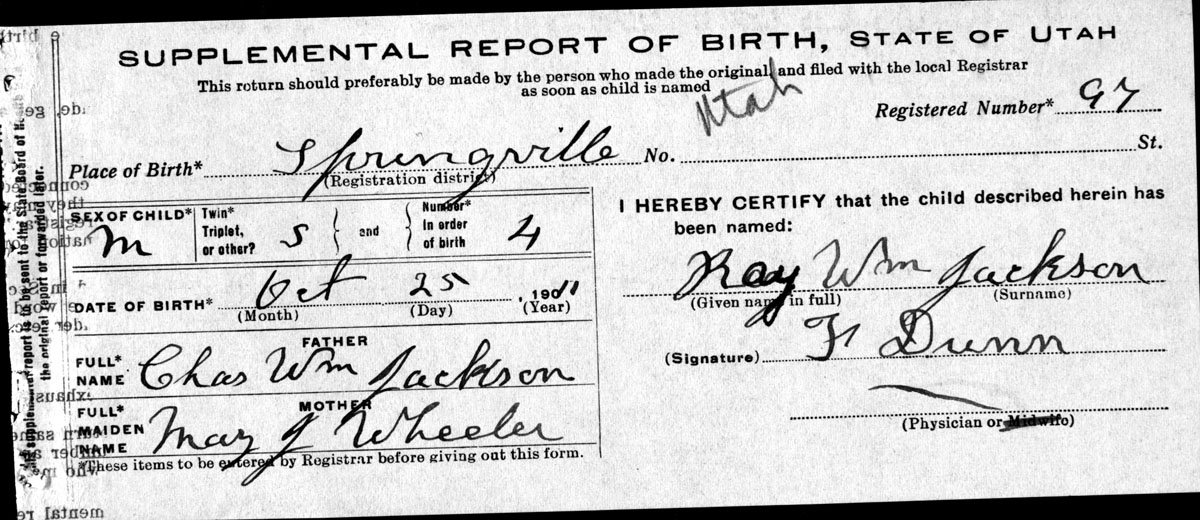 SUPPLEMENTAL REPORT OF BIRTH, STATE OF UTAH
This return should preferably be made by the person who made the original and filed with the local Registrar
as soon as child is named
Utah
Registered Number* 97
Place of Birth* Springville No. St.
(Registration district)
SEX OF CHILD* M
Twin* Triplet, or other? S and Number* In order of birth 4
DATE OF BIRTH* Oct 25, 1911
(Month) (Day) (Year)
FATHER
FULL* NAME Chas Wm Jackson
MOTHER
FULL* MAIDEN NAME May J Wheeler
*These items to be entered by Registrar before giving out this form.
I HEREBY CERTIFY that the child described herein has
been named:
Ray Wm Jackson
(Given name in full) (Surname)
(Signature) F Dunn
(Physician or Midwife)
report is to be sent to the State Board of
the original report or forwarded later.